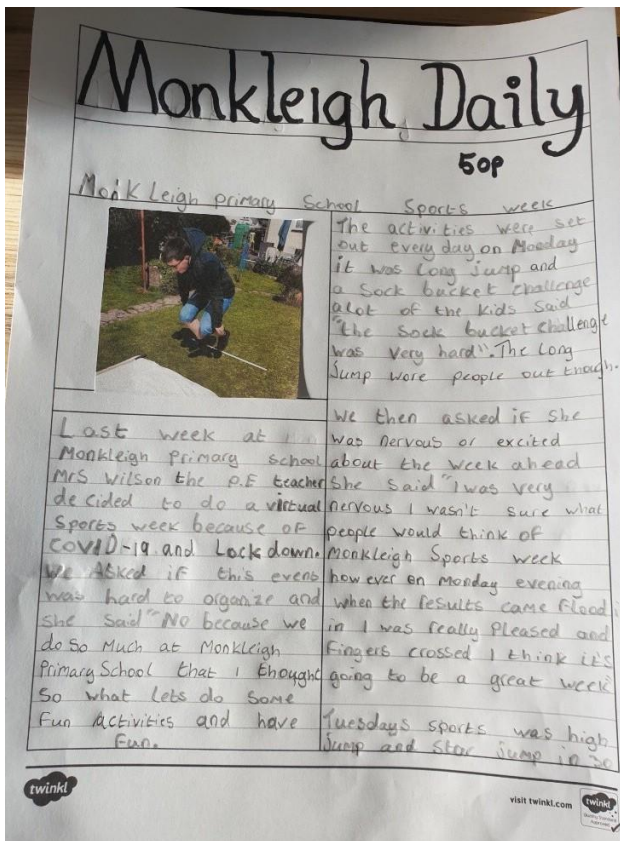 Monkleigh Daily
50p
Monkleigh primary School Sports week
Last week at
Monkleigh Primary school
Mrs Wilson the P.E teacher
decided to do a virtual
Sports week because of
COVID-19 and Lockdown.
We Asked if this event
was hard to organize and
she said "No because we
do so Much at Monkleigh
Primary School that I thought
so what lets do some
Fun activities and have
Fun.
The activities were set
out every day on Monday
it was long jump and
a Sock bucket challenge
alot of the kids said
"the sock bucket challenge
was very hard". The long
Jump wore people out though.
We then asked if she
was nervous or excited
about the week ahead
she said "I was very
nervous I wasn't sure what
people would think of
Monkleigh Sports week
however on Monday evening
when the results came flood
in I was really Pleased and
Fingers crossed I think it's
going to be a great week"
Tuesdays sports was high
Jump and Star jump in 30
twinkl
visit twinkl.com
twinkl